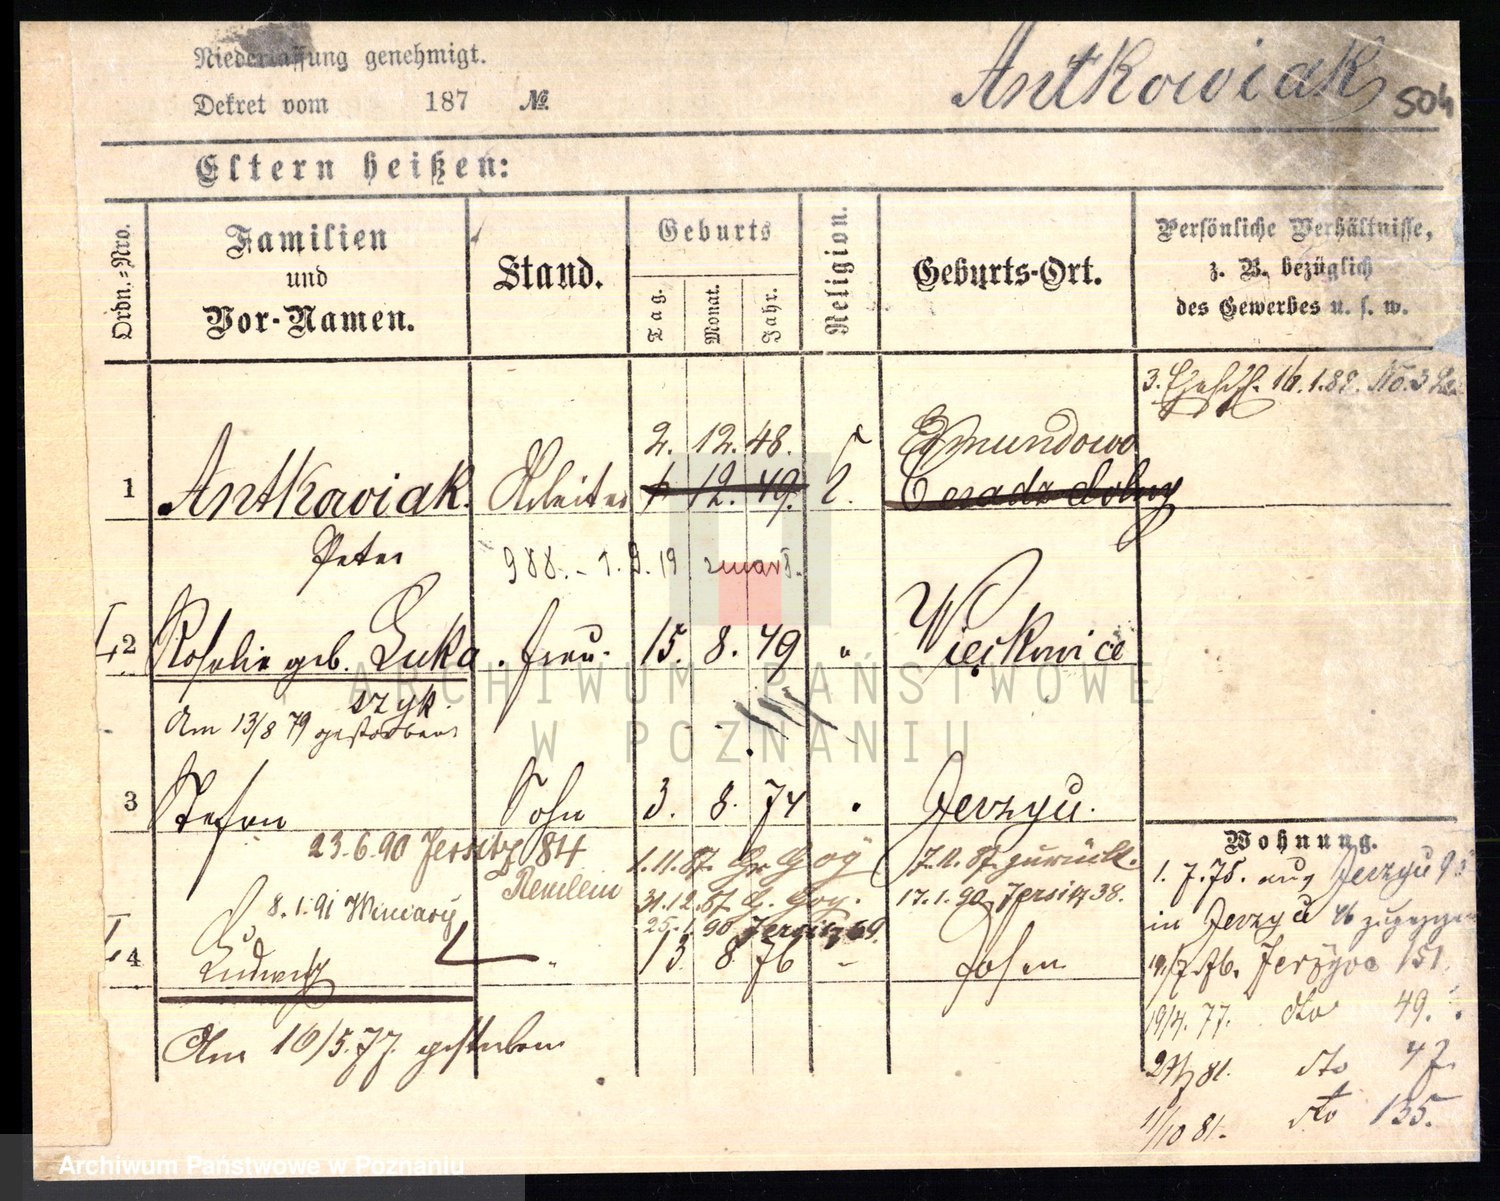 Niederlassung genehmigt.
Dekret vom 187 №
Antkowiak 504
Eltern heißen:
Ordn.=Nro.
Familien
und
Vor-Namen.
Stand.
Geburts
Tag.
Monat.
Jahr.
Religion.
Geburts-Ort.
Persönliche Verhältnisse,
z. B. bezüglich
des Gewerbes u. s. w.
2. 12. 48. Edmundowo
1 Antkowiak Arbeiter 12. 49.
Peter
988. - 1. 9. 19 zmarł.
2 Rosalie geb. Luka Frau. 15. 8. 49 " Więckowice
szyk.
Am 13/8 79 gestorben
3 Stefan Sohn 3. 8. 74 Jerzyce.
23.6.90 Jersitz 84
1.11.87. zurück.
31.12.87 17.1.90 Jersitz 38.
8.1.91 Winiary 25.1.90 Jersitz 69.
4 Ludwig " 13. 8. 76 - Posen
Am 10/5.77. gestorben
Wohnung.
1. 7. 75. aus Jerzyce 95
in Jerzyce 46 zugezogen
19/7. 76. Jerzyce 151.
19/4. 77. dto 49.
81. dto 47.
1/10 81. dto 135.
ARCHIWUM PAŃSTWOWE
W POZNANIU
Archiwum Państwowe w Poznaniu